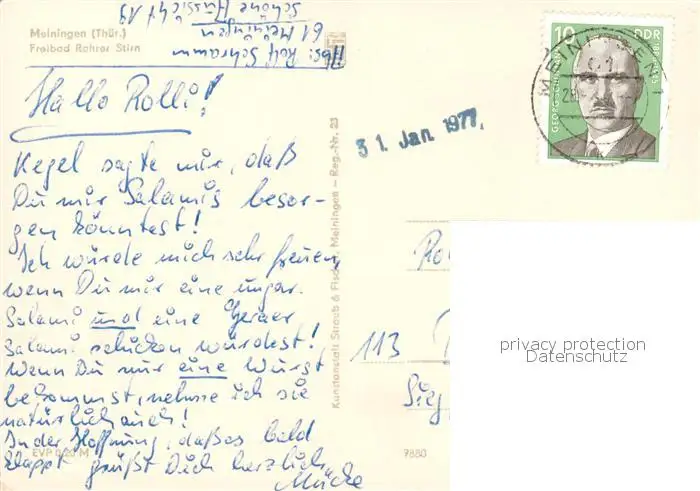 Meiningen (Thür.)
Freibad Rohrer Stirn
Abs: Rolf Schramm
61 Meiningen
Schöne Aussicht 19
Hallo Rolli!
Kegel sagte mir, daß
Du mir Salamis besor-
gen könntest!
Ich würde mich sehr freuen,
wenn Du mir eine ungar.
Salami und eine Geraer
Salami schicken würdest!
Wenn Du nur eine Wurst
bekommst, nehme ich sie
natürlich auch!
In der Hoffnung, daß es bald
klappt grüßt Dich herzlich
Mücke
EVP 0,20 M
7880
Kunstanstalt Straub & Fischer Meiningen - Reg.-Nr. 23
31. Jan. 1977
10 DDR
GEORG
MEININGEN 1
Ro
113
Sieg
privacy protection
Datenschutz